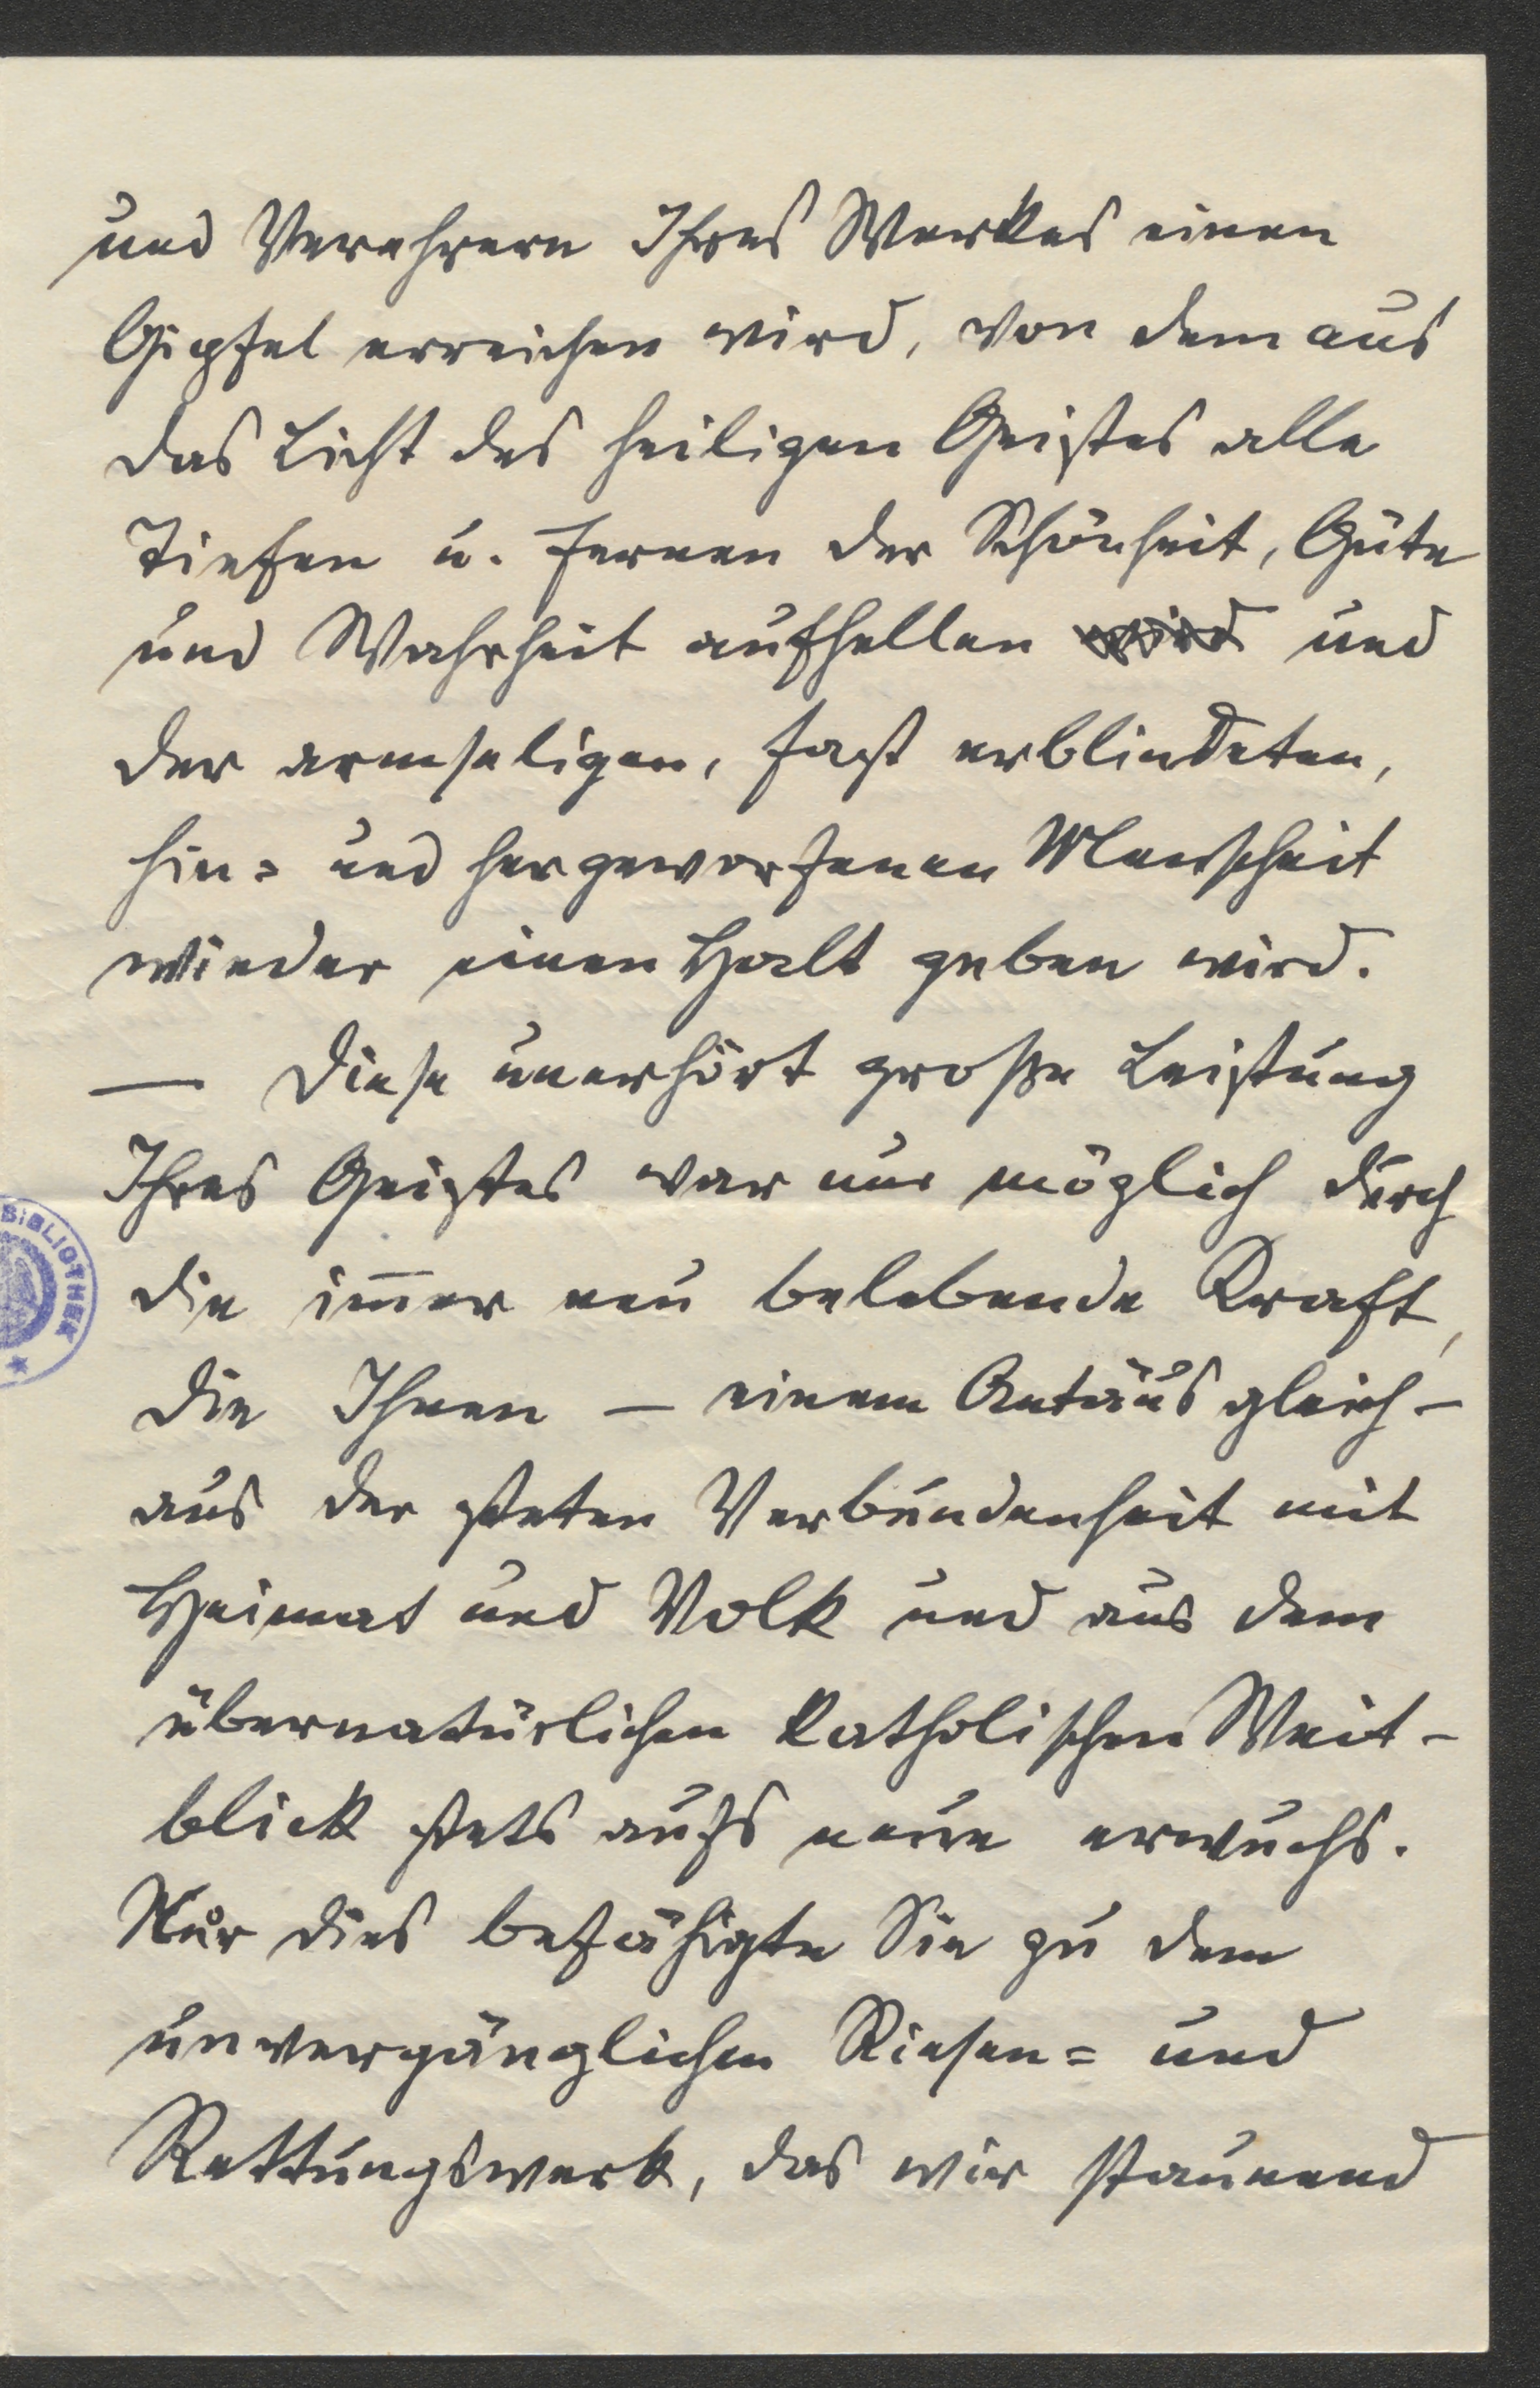 und Verehrern Ihres Werkes einen
Gipfel erreichen wird, von dem aus
das Licht des heiligen Geistes alle
Tiefen u. Fernen der Schönheit, Güte
und Wahrheit aufhellen wird und
der armseligen, fast erblindeten,
hin= und hergeworfenen Menschheit
wieder einen Halt geben wird.
— Diese unerhört große Leistung
Ihres Geistes war nur möglich durch
die im̄er neu belebende Kraft,
die Ihnen – einem Antäus gleich –
aus der steten Verbundenheit mit
Heimat und Volk und aus dem
übernatürlichen katholischen Weit-
blick stets aufs neue erwuchs.
Nur dies befähigte Sie zu dem
unvergänglichen Riesen= und
Rettungswerk, das wir staunend
BIBLIOTHEK